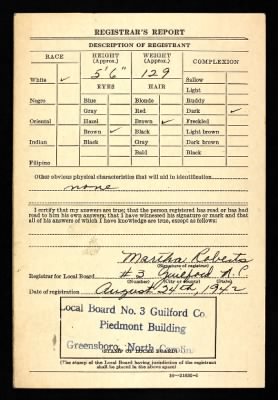 REGISTRAR'S REPORT
DESCRIPTION OF REGISTRANT
RACE HEIGHT (Approx.) WEIGHT (Approx.) COMPLEXION
5'6" 129
White ✓ Sallow
EYES HAIR Light
Negro Blue Blonde Ruddy
Gray Red Dark ✓
Oriental Hazel Brown ✓ Freckled
Brown ✓ Black Light brown
Indian Black Gray Dark brown
Bald Black
Filipino
Other obvious physical characteristics that will aid in identification
none
I certify that my answers are true; that the person registered has read or has had
read to him his own answers; that I have witnessed his signature or mark and that
all of his answers of which I have knowledge are true, except as follows:
Martha Roberts
(Signature of registrar)
Registrar for Local Board #3 Guilford N.C
(Number) (City or County) (State)
Date of registration August 24th, 1942
Local Board No. 3 Guilford Co.
Piedmont Building
Greensboro, North Carolina
(STAMP OF LOCAL BOARD)
(The stamp of the Local Board having jurisdiction of the registrant
shall be placed in the above space)
16—21630-2